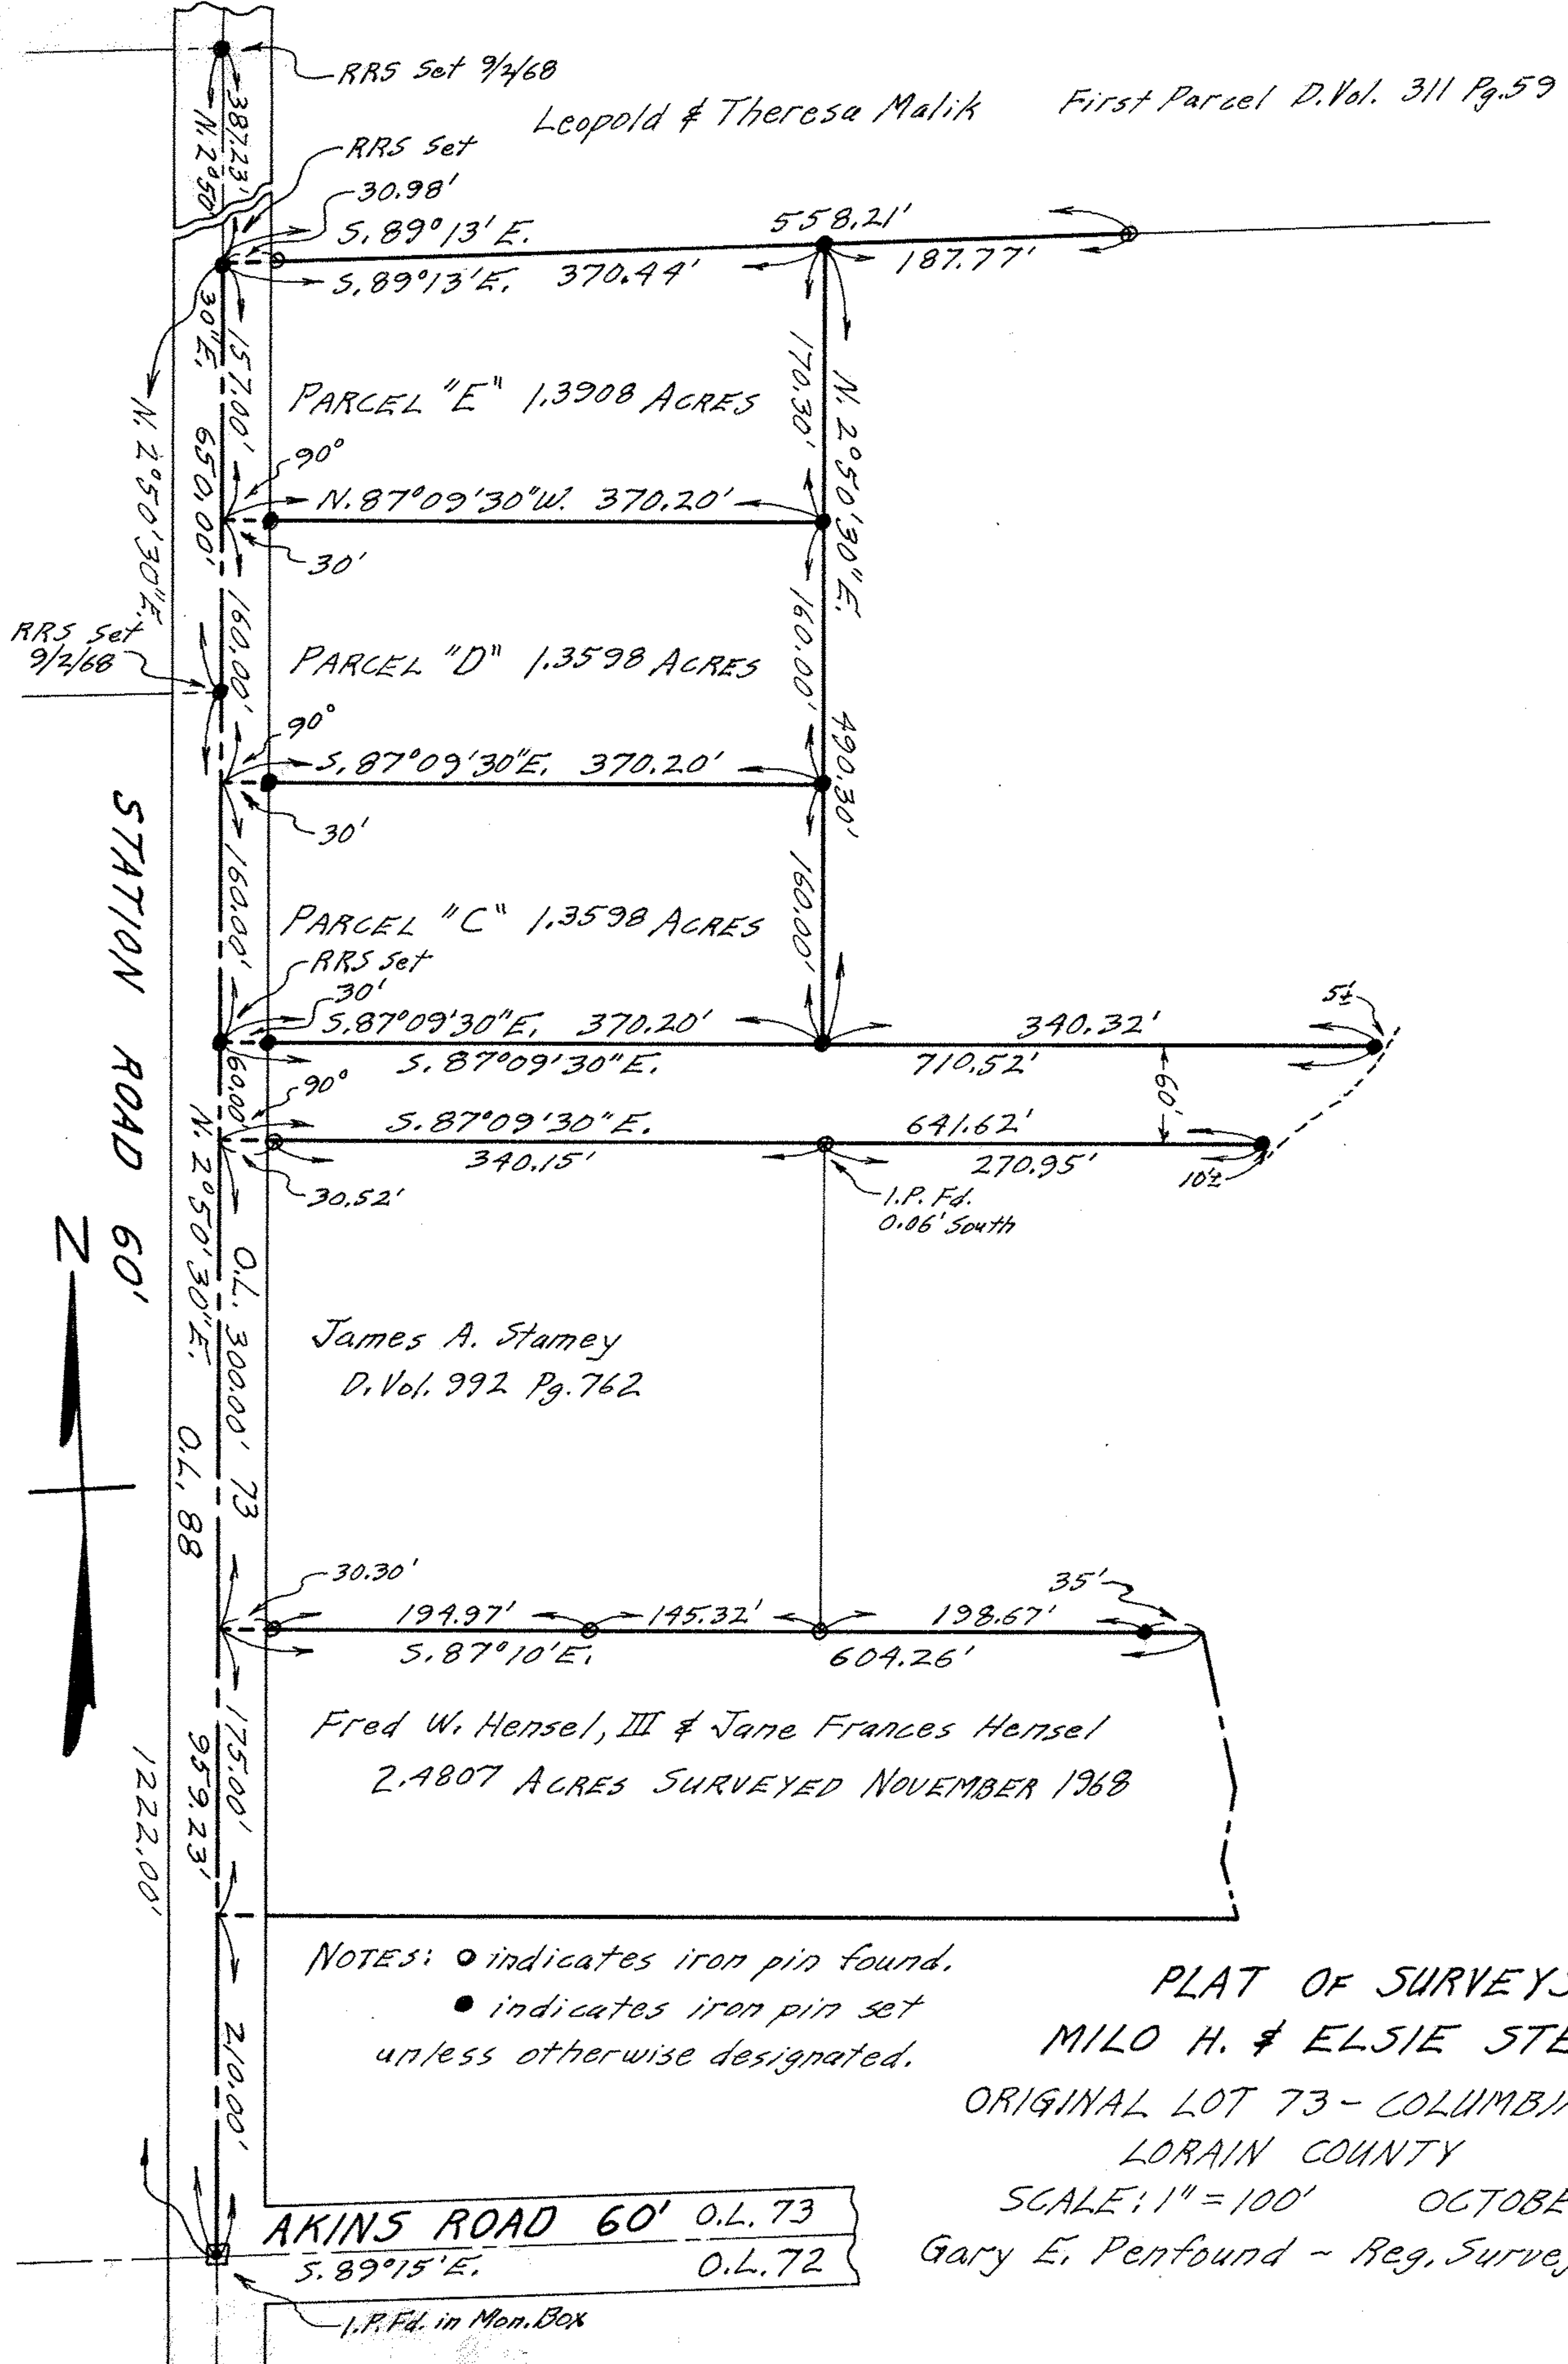 RRS Set 9/2/68
Leopold & Theresa Malik First Parcel D.Vol. 311 Pg.59
387.23'
N. 2°50'
RRS Set
30.98'
S. 89°13' E. 558.21'
S. 89°13' E. 370.44' 187.77'
30" E. 650.00'
157.00'
N. 2°50'30" E.
PARCEL "E" 1.3908 ACRES
170.30'
N. 2°50'30" E.
490.30'
90°
N. 87°09'30" W. 370.20'
30'
160.00'
RRS Set
9/2/68
PARCEL "D" 1.3598 ACRES
160.00'
90°
S. 87°09'30" E. 370.20'
30'
160.00'
PARCEL "C" 1.3598 ACRES
160.00'
RRS Set
30'
S. 87°09'30" E. 370.20' 340.32'
5'±
S. 87°09'30" E. 710.52'
60.00'
90°
60'
S. 87°09'30" E. 641.62'
340.15' 270.95'
10'±
30.52'
I.P. Fd.
0.06' South
STATION ROAD 60'
N
N. 2°50'30" E. O.L. 88
O.L. 300.00' 73
James A. Stamey
D.Vol. 992 Pg. 762
30.30'
35'
194.97' 145.32' 198.67'
S. 87°10' E. 604.26'
175.00'
959.23'
1222.00'
Fred W. Hensel, III & Jane Frances Hensel
2.4807 ACRES SURVEYED NOVEMBER 1968
NOTES: o indicates iron pin found.
● indicates iron pin set
unless otherwise designated.
210.00'
PLAT OF SURVEYS
MILO H. & ELSIE STE
ORIGINAL LOT 73 - COLUMBI
LORAIN COUNTY
SCALE: 1" = 100' OCTOBE
Gary E. Penfound ~ Reg. Surve
AKINS ROAD 60' O.L. 73
S. 89°15' E. O.L. 72
I.P. Fd. in Mon. Box